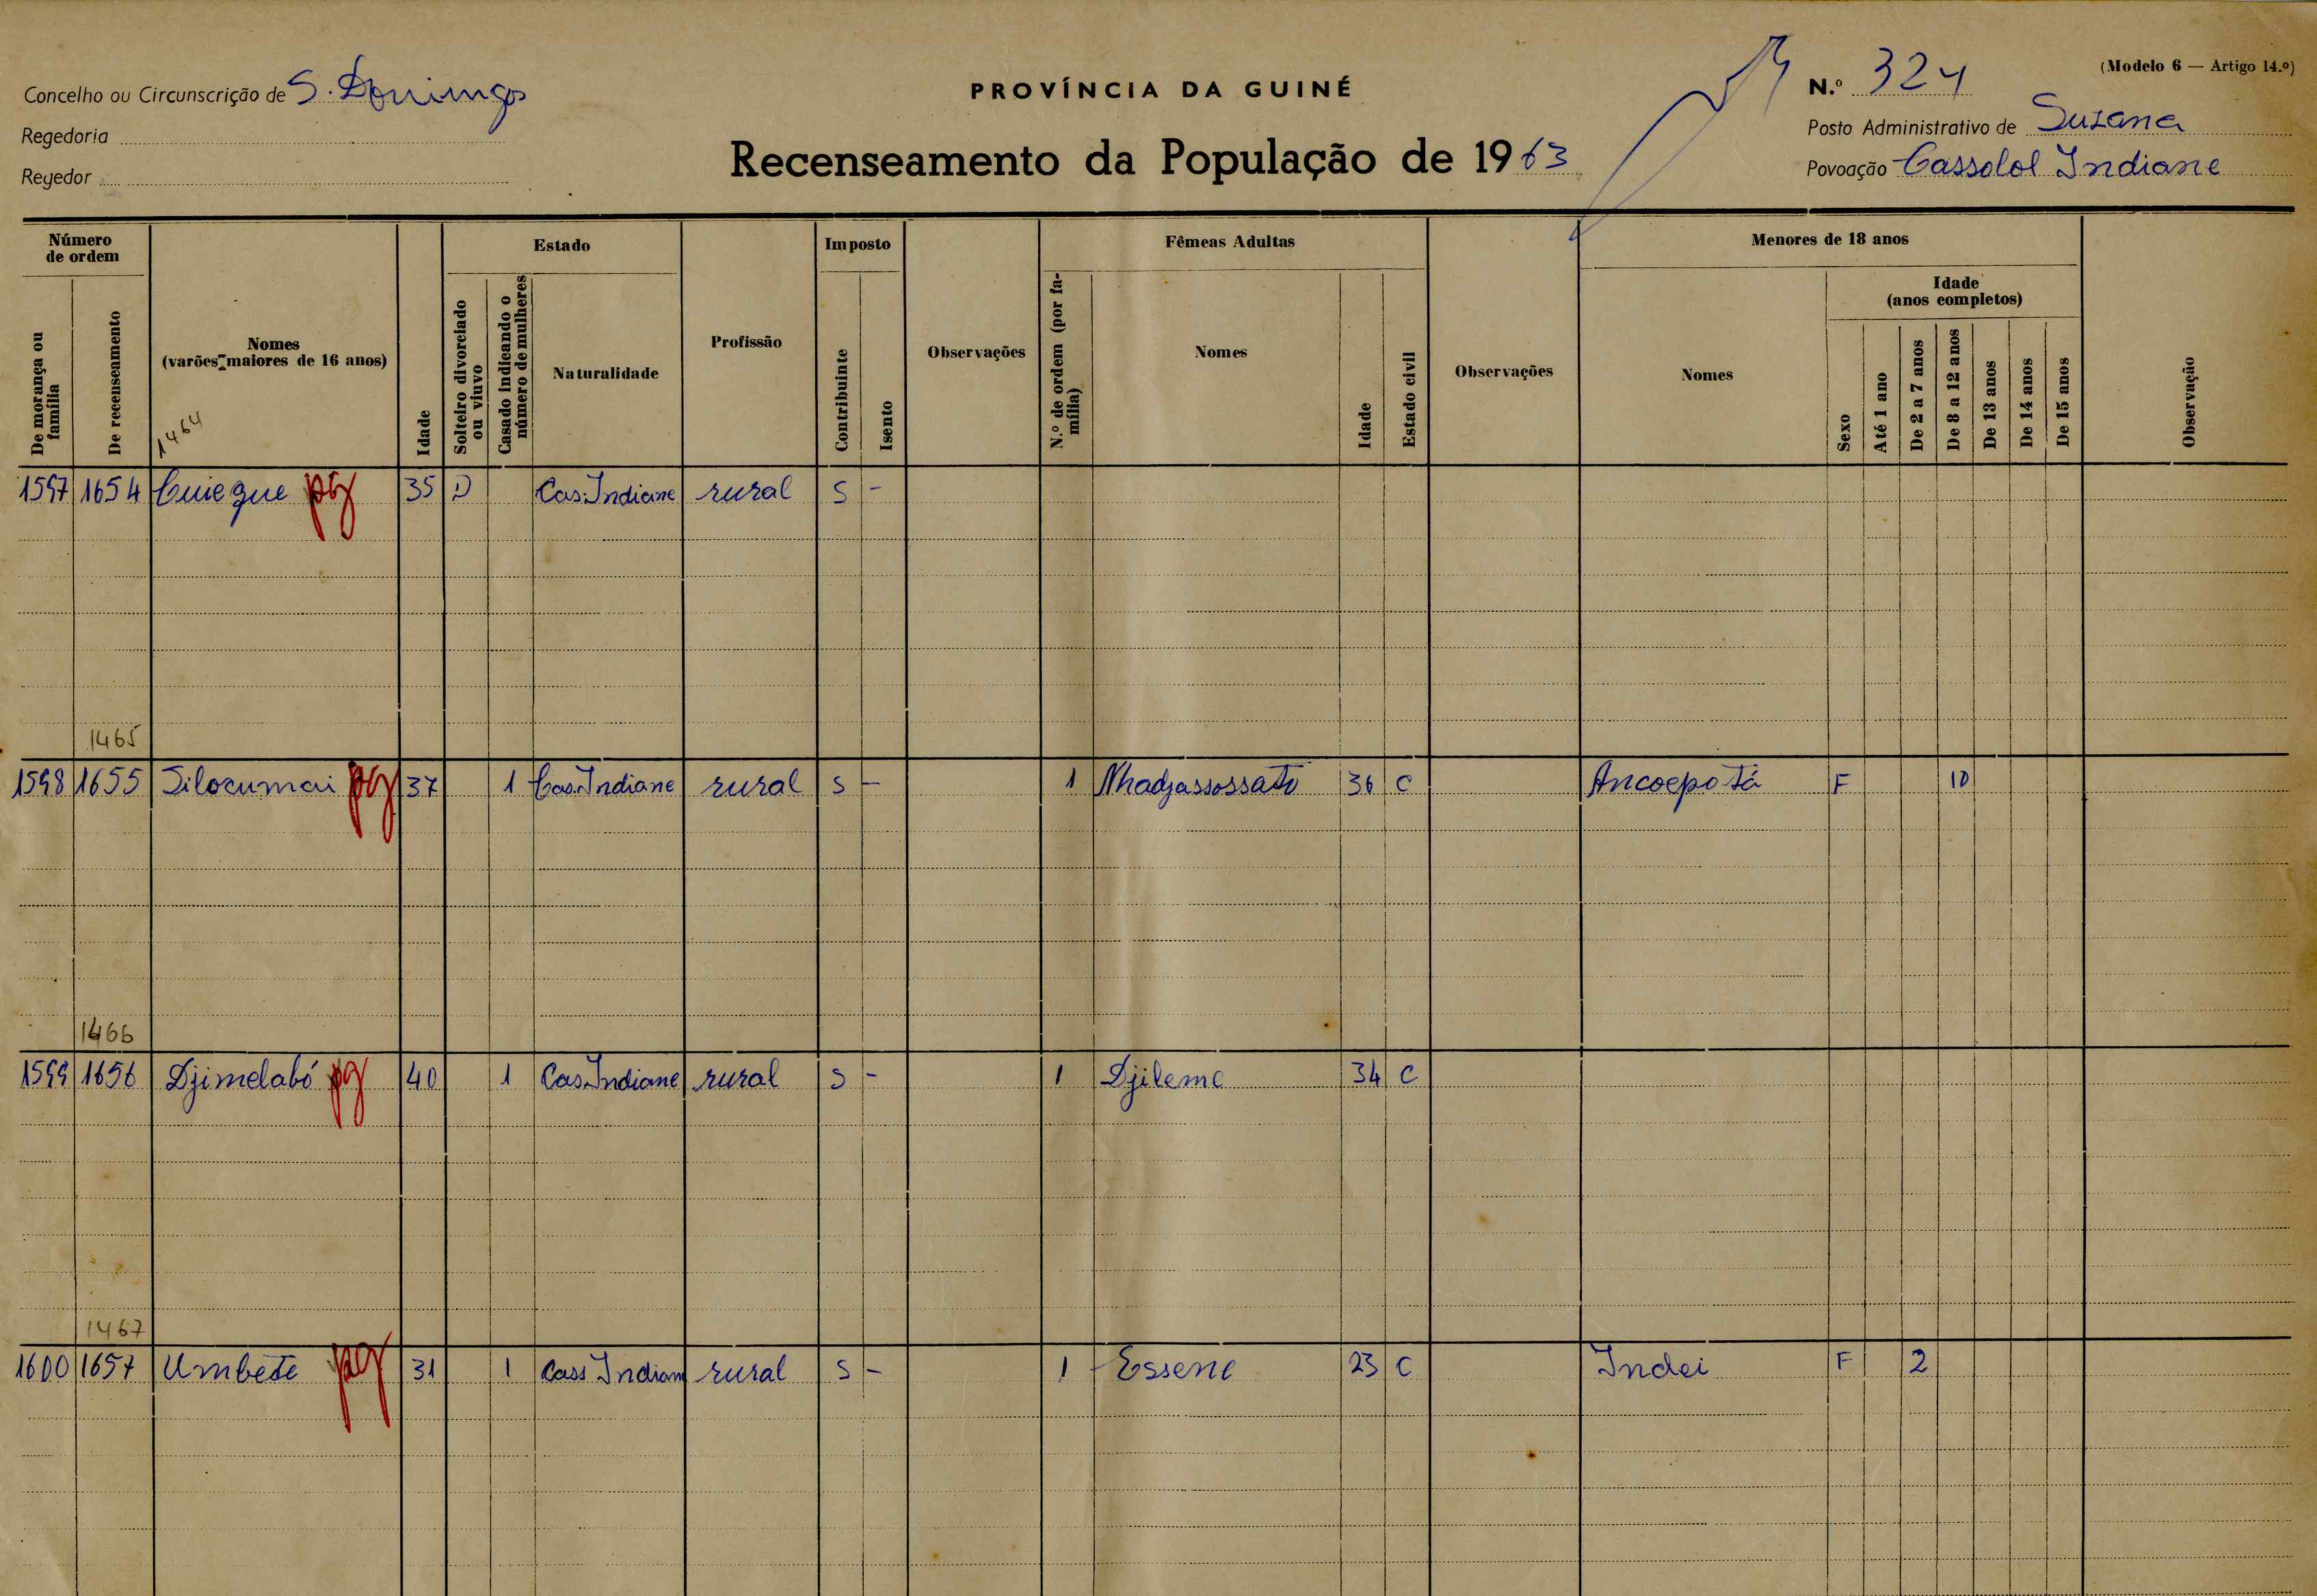 (Modelo 6 — Artigo 14.º)
Concelho ou Circunscrição de S. Domingos
PROVÍNCIA DA GUINÉ
N.º 324
Regedoria
Posto Administrativo de Suzana
Regedor
Recenseamento da População de 1963
Povoação Cassolol Indiane
Número de ordem
De morança ou família
De recenseamento
Nomes
(varões maiores de 16 anos)
1464
Idade
Estado
Solteiro divorciado ou viuvo
Casado indicando o número de mulheres
Naturalidade
Profissão
Imposto
Contribuinte
Isento
Observações
Fêmeas Adultas
N.º de ordem (por família)
Nomes
Idade
Estado civil
Observações
Menores de 18 anos
Nomes
Sexo
Idade
(anos completos)
Até 1 ano
De 2 a 7 anos
De 8 a 12 anos
De 13 anos
De 14 anos
De 15 anos
Observação
1597 1654 Cuieque pg 35 D Cas. Indiane rural S -
1465
1598 1655 Silocumai pg 37 1 Cas. Indiane rural S - 1 Nhadjassossato 36 C Ancoepotá F 10
1466
1599 1656 Djimelabó pg 40 1 Cas. Indiane rural S - 1 Djileme 34 C
1467
1600 1657 Umbete pg 31 1 Cass Indiane rural S - 1 Essene 23 C Indei F 2